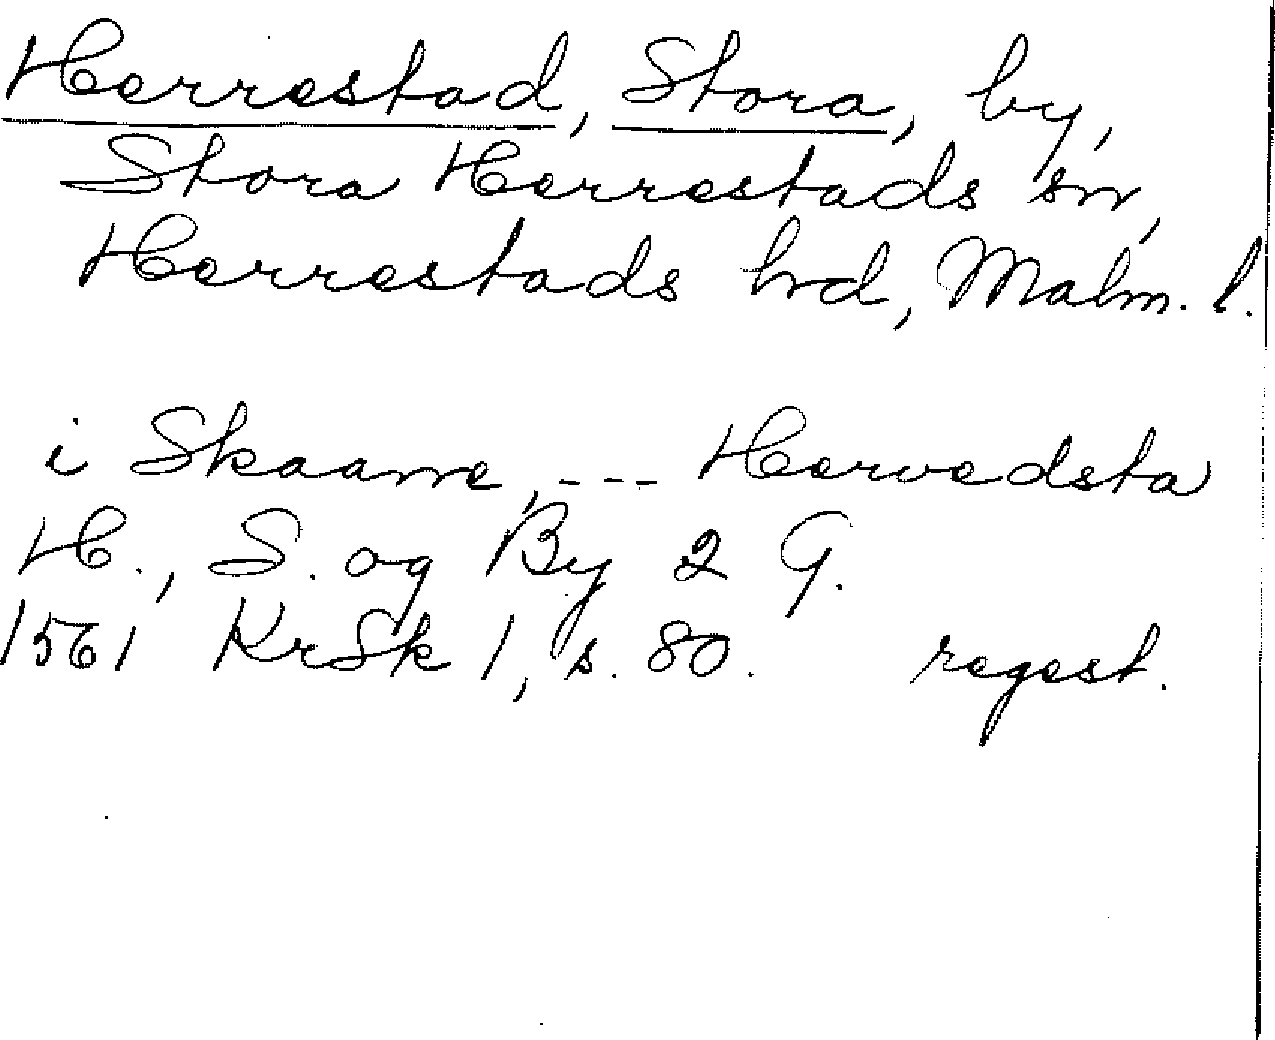 Herrestad, Stora, by,
Stora Herrestads sn,
Herrestads hrd, Malm. l.
i Skaane, --- Hervedsta
H., S. og By 2 G.
1561 KrSk 1, s. 80. regest.